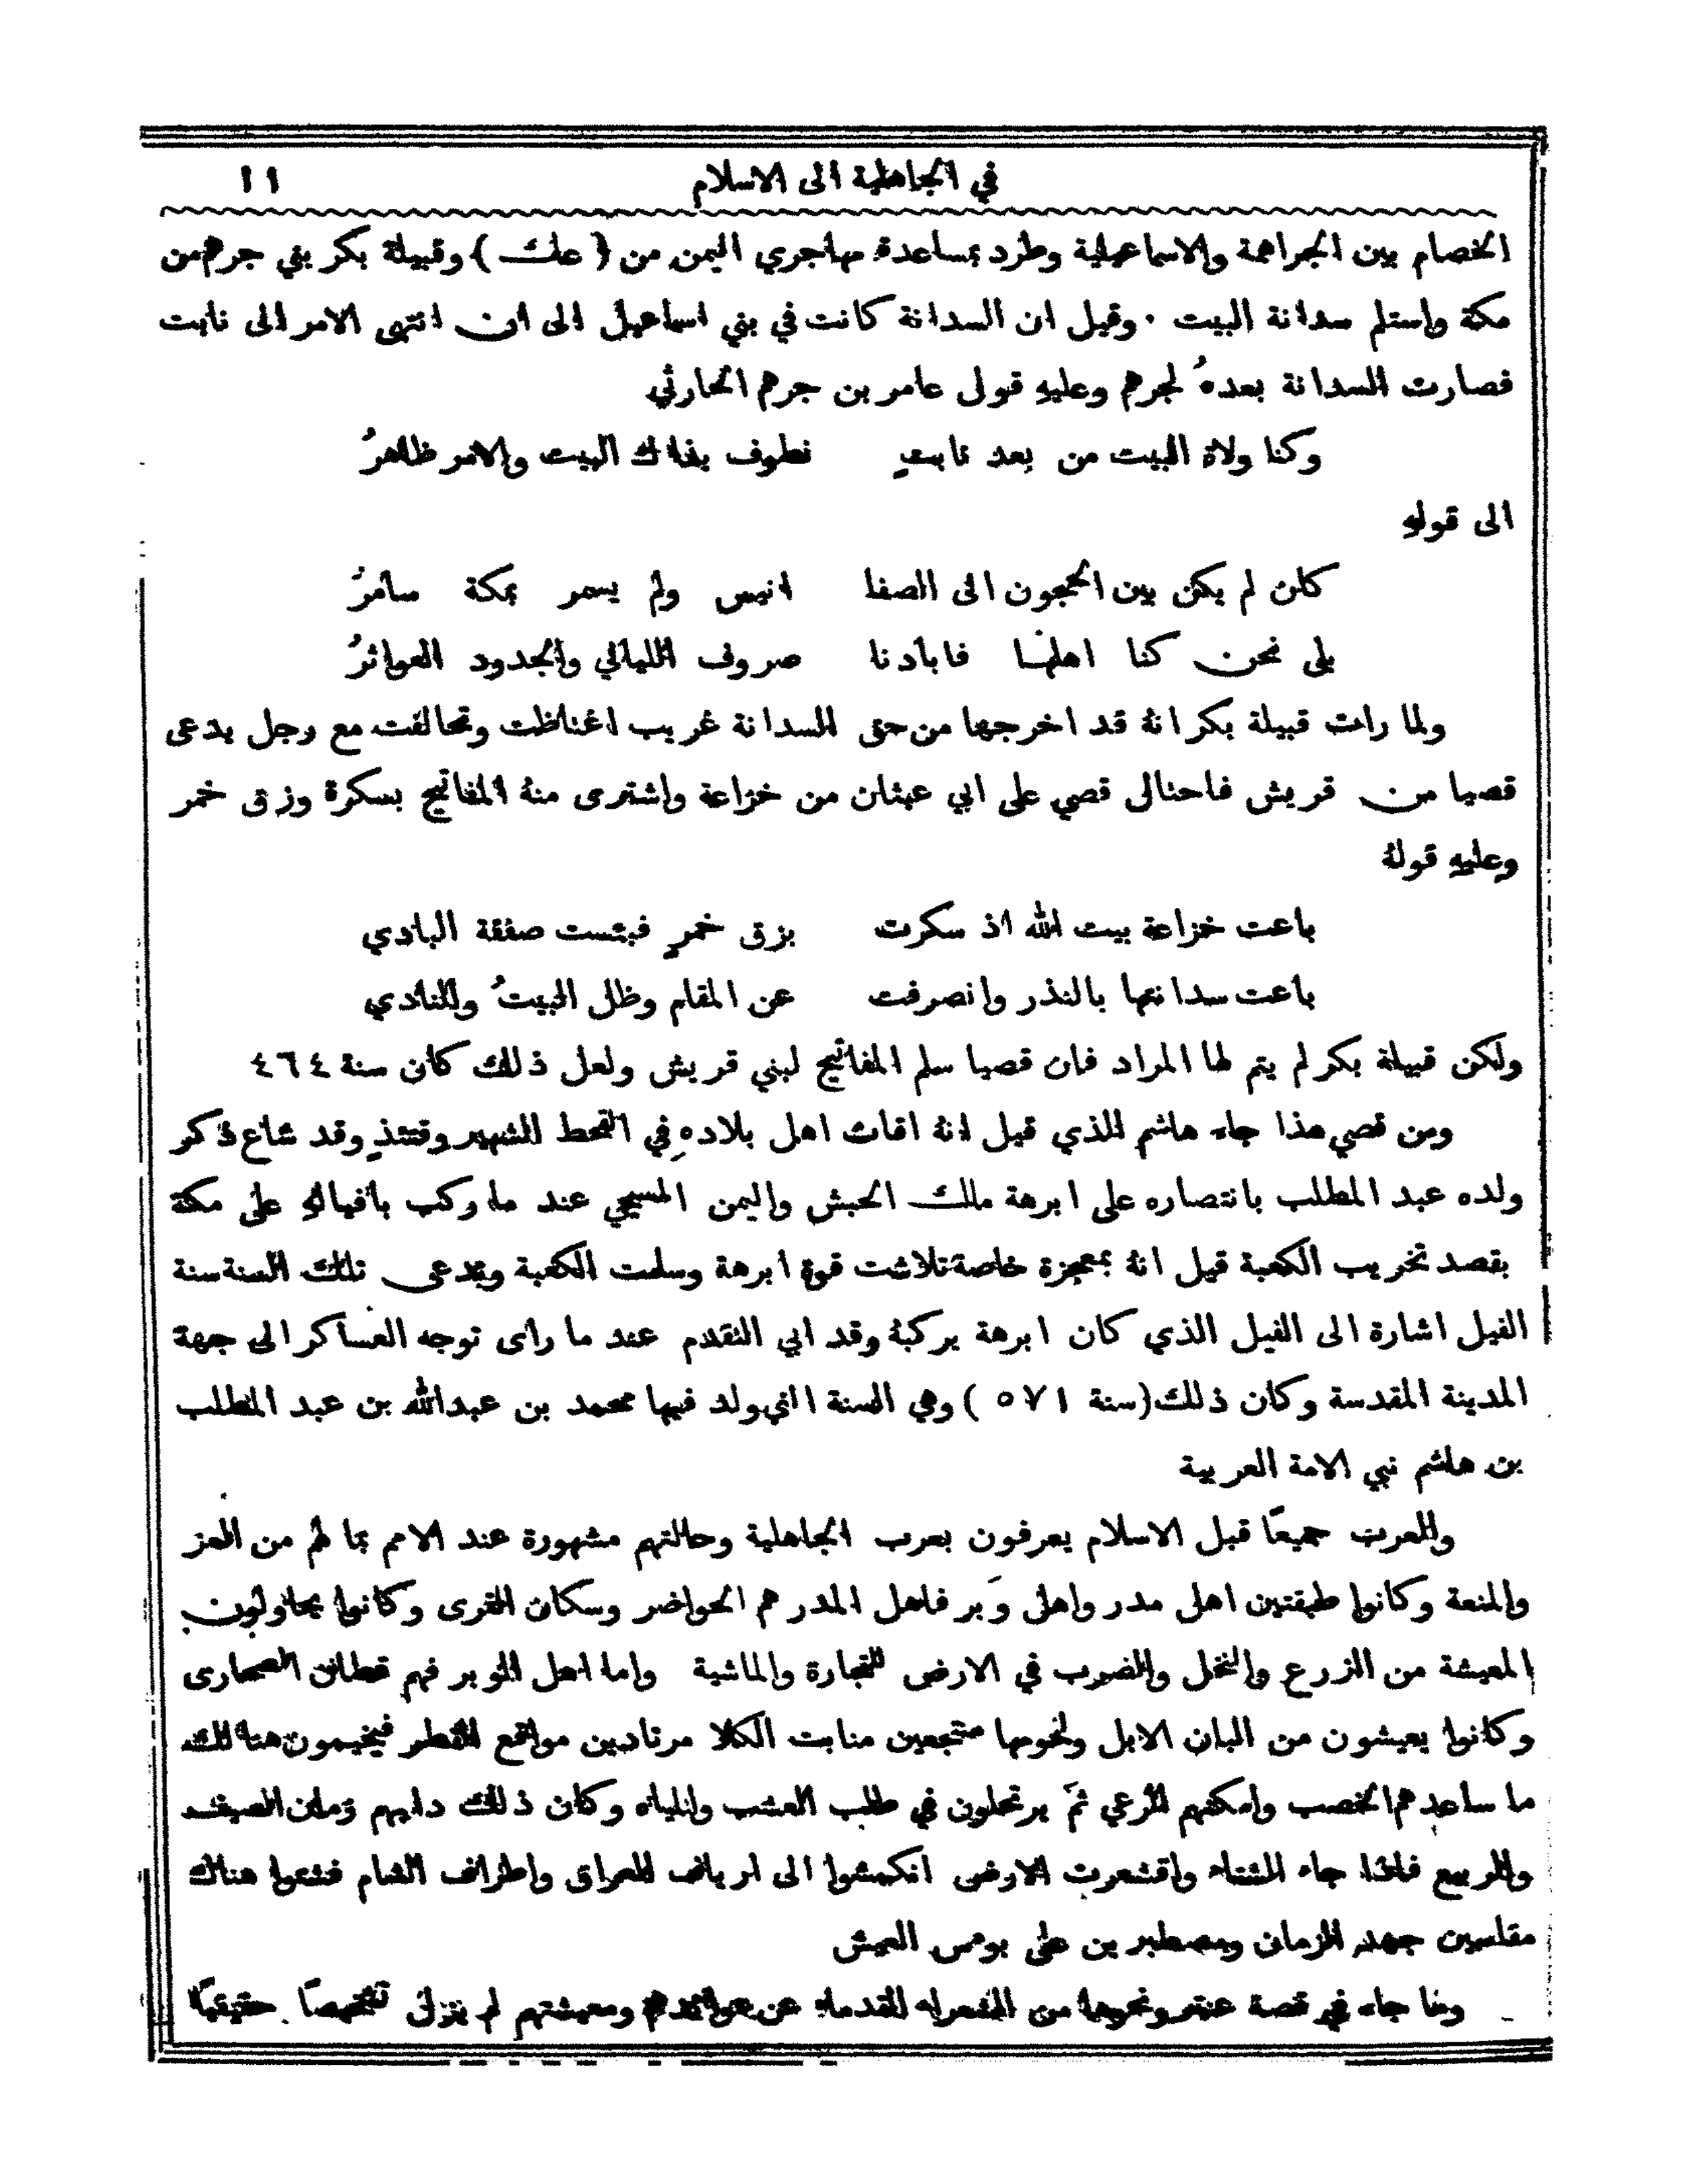 في الجاهلية الى الاسلام ١١
الخصام بين الجراهمة والاسماعيلية وطرد بمساعدة مهاجري اليمن من (عك) وقبيلة بكر بني جرهم من
مكة واستلم سدانة البيت . وقيل ان السدانة كانت في بني اسماعيل الى ان انتهى الامر الى نابت
فصارت السدانة بعدهُ لجرهم وعليهِ قول عامر بن جرهم الحارثي
وكنا ولاة البيت من بعد نابتٍ نطوف بذاك البيت والامر ظاهرُ
الى قولهِ
كان لم يكن بين الحجون الى الصفا انيس ولم يسمر بمكة سامرُ
بلى نحن كنا اهلها فابادنا صروف الليالي والجدود العواثرُ
ولما رات قبيلة بكر انهُ قد اخرجها من حق السدانة غريب اغتاظت وتحالفت مع رجل يدعى
قصيا من قريش فاحتال قصي على ابي عبثان من خزاعة واشترى منهُ المفاتيح بسكرة وزق خمر
وعليهِ قولهُ
باعت خزاعة بيت الله اذ سكرت بزق خمرٍ فبئست صفقة البادي
باعت سدانتها بالنذر وانصرفت عن المقام وظل البيتُ والنادي
ولكن قبيلة بكر لم يتم لها المراد فان قصيا سلم المفاتيح لبني قريش ولعل ذلك كان سنة ٤٦٤
ومن قصي هذا جاء هاشم الذي قيل انهُ اقات اهل بلادهِ في القحط الشهير وقتئذٍ وقد شاع ذكر
ولده عبد المطلب بانتصاره على ابرهة ملك الحبش واليمن المسيحي عند ما ركب بافيالهِ على مكة
بقصد تخريب الكعبة قيل انهُ بمعجزة خاصة تلاشت قوة ابرهة وسلمت الكعبة وتدعى تلك السنة سنة
الفيل اشارة الى الفيل الذي كان ابرهة يركبهُ وقد ابي التقدم عند ما راى توجه العساكر الى جهة
المدينة المقدسة وكان ذلك (سنة ٥٧١) وهي السنة التي ولد فيها محمد بن عبدالله بن عبد المطلب
بن هاشم نبي الامة العربية
والعرب جميعًا قبل الاسلام يعرفون بعرب الجاهلية وحالتهم مشهورة عند الامم بما لهم من العز
والمنعة وكانوا طبقتين اهل مدر واهل وَبر فاهل المدر هم الحواضر وسكان القرى وكانوا يحاولون
المعيشة من الزرع والنخل والضرب في الارض للتجارة والماشية واما اهل الوبر فهم قطان الصحارى
وكانوا يعيشون من البان الابل ولحومها منتجعين منابت الكلا مرتادين مواقع القطر فيخيمون هنالك
ما ساعدهم الخصب وامكنهم الرعي ثمَ يرتحلون في طلب العشب والمياه وكان ذلك دابهم زمان الصيف
والربيع فاذا جاء الشتاء واقشعرت الارض انكمشوا الى ارياف العراق واطراف الشام فشتوا هناك
مقاسين جهد الزمان ومصطبرين على بوس العيش
وما جاء في قصة عنتر ونحوها من الشعراء القدماء عن عوائدهم ومعيشتهم لم يزل تشخيصًا حقيقيًا